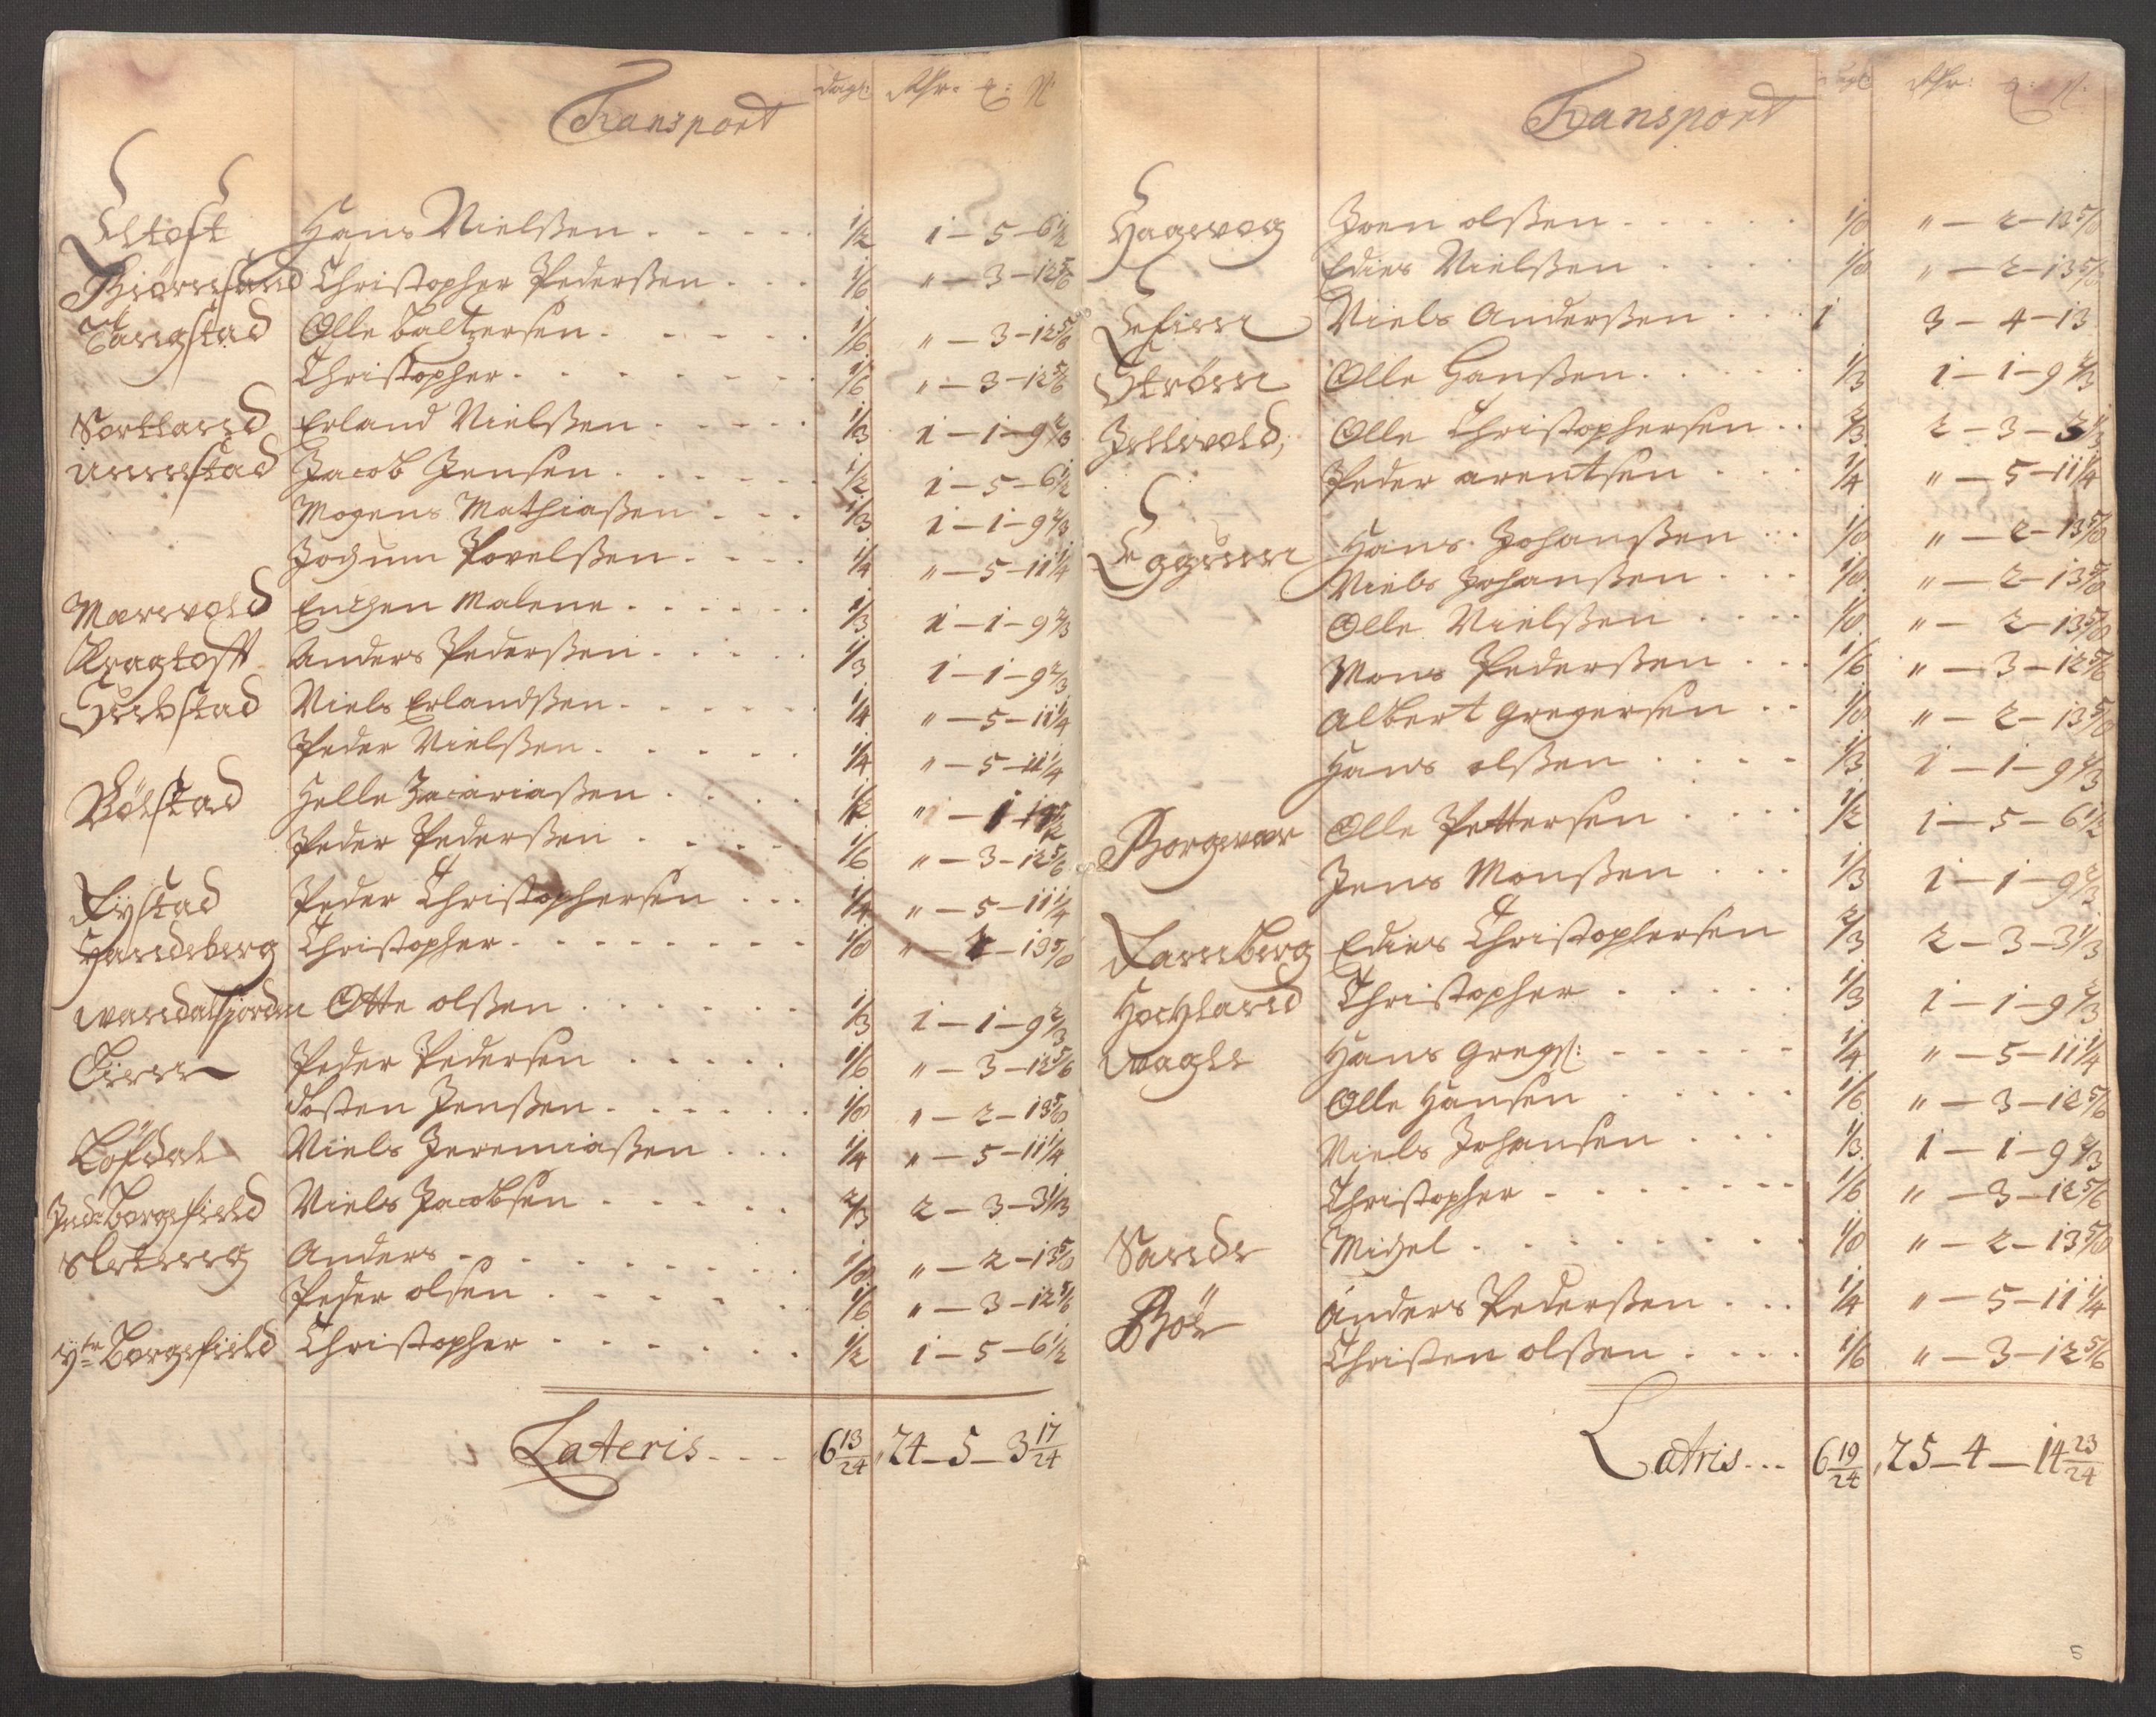 Transport
dagl: Rdr: : 
Eltoft Hans Nielßen 1/2 1 – 5 – 6 1/2
Biørnsand Christopher Pederßen 1/6 " – 3 – 12 5/6
Tangstad Olle Baltzersen 1/6 " – 3 – 12 5/6
Christopher 1/6 " – 3 – 12 5/6
Sortland Erland Nielßen 1/3 1 – 1 – 9 2/3
Unnstad Jacob Jensen 1/2 1 – 5 – 6 1/2
Mogens Mathiaßen 1/3 1 – 1 – 9 2/3
Jochum Povelßen 1/4 " – 5 – 11 1/4
Mærvold Enchen Malene 1/3 1 – 1 – 9 2/3
Kragtofft Anders Pederßen 1/3 1 – 1 – 9 2/3
Huchstad Niels Erlandßen 1/4 " – 5 – 11 1/4
Peder Nielßen 1/4 " – 5 – 11 1/4
Bølstad Helle Zacariaßen
Peder Pederßen 1/6 " – 3 – 12 5/6
Fÿstad Peder Christophersen 1/4 " – 5 – 11 1/4
Handberg Christopher 1/8 " – 2 – 13 5/8
Wandalsfjorden Otte olßen 1/3 1 – 1 – 9 2/3
Einn Peder Pedersen 1/6 " – 3 – 12 5/6
Tosten Jenßen 1/8 " – 2 – 13 5/8
Løfdal Niels Jeremiaßen 1/4 " – 5 – 11 1/4
Indr Borgefield Niels Jacobsen 2/3 2 – 3 – 3 1/3
Sletteng Anders 1/8 " – 2 – 13 5/8
Peder olsen 1/6 " – 3 – 12 5/6
ÿtr Borgefield Christopher 1/2 1 – 5 – 6 1/2
Lateris 6 13/24 24 – 5 – 3 17/24
Transport
dagl Rdr: : 
Hagevog Joen olßen 1/8 " – 2 – 13 5/8
Edies Nielßen 1/8 " – 2 – 13 5/8
Niels Anderßen 1 3 – 4 – 13
Strøm Olle Hanßen 1/3 1 – 1 – 9 2/3
Jellvold Olle Christophersen 2/3 2 – 3 – 3 1/3
Peder arentsen 1/4 " – 5 – 11 1/4
Eggum Hans Johanßen 1/8 " – 2 – 13 5/8
Niels Johanßen 1/8 " – 2 – 13 5/8
Olle Nielßen 1/8 " – 2 – 13 5/8
Mons Pederßen 1/6 " – 3 – 12 5/6
Albert Gregersen 1/8 " – 2 – 13 5/8
Hans olßen 1/3 1 – 1 – 9 2/3
Borgevær Olle Pettersen 1/2 1 – 5 – 6 1/2
Jens Monßen 1/3 1 – 1 – 9 2/3
Edies Christophersen 2/3 2 – 3 – 3 1/3
Hochland Christopher 1/3 1 – 1 – 9 2/3
Wagle Hans Gregs: 1/4 " – 5 – 11 1/4
Olle Hansen 1/6 " – 3 – 12 5/6
Niels Johansen 1/3 1 – 1 – 9 2/3
Christopher 1/6 " – 3 – 12 5/6
Sande Michel 1/8 " – 2 – 13 5/8
Bøe Anders Pederßen 1/4 " – 5 – 11 1/4
Christen olßen 1/6 " – 3 – 12 5/6
Latris 6 19/24 25 – 4 – 14 23/24
5